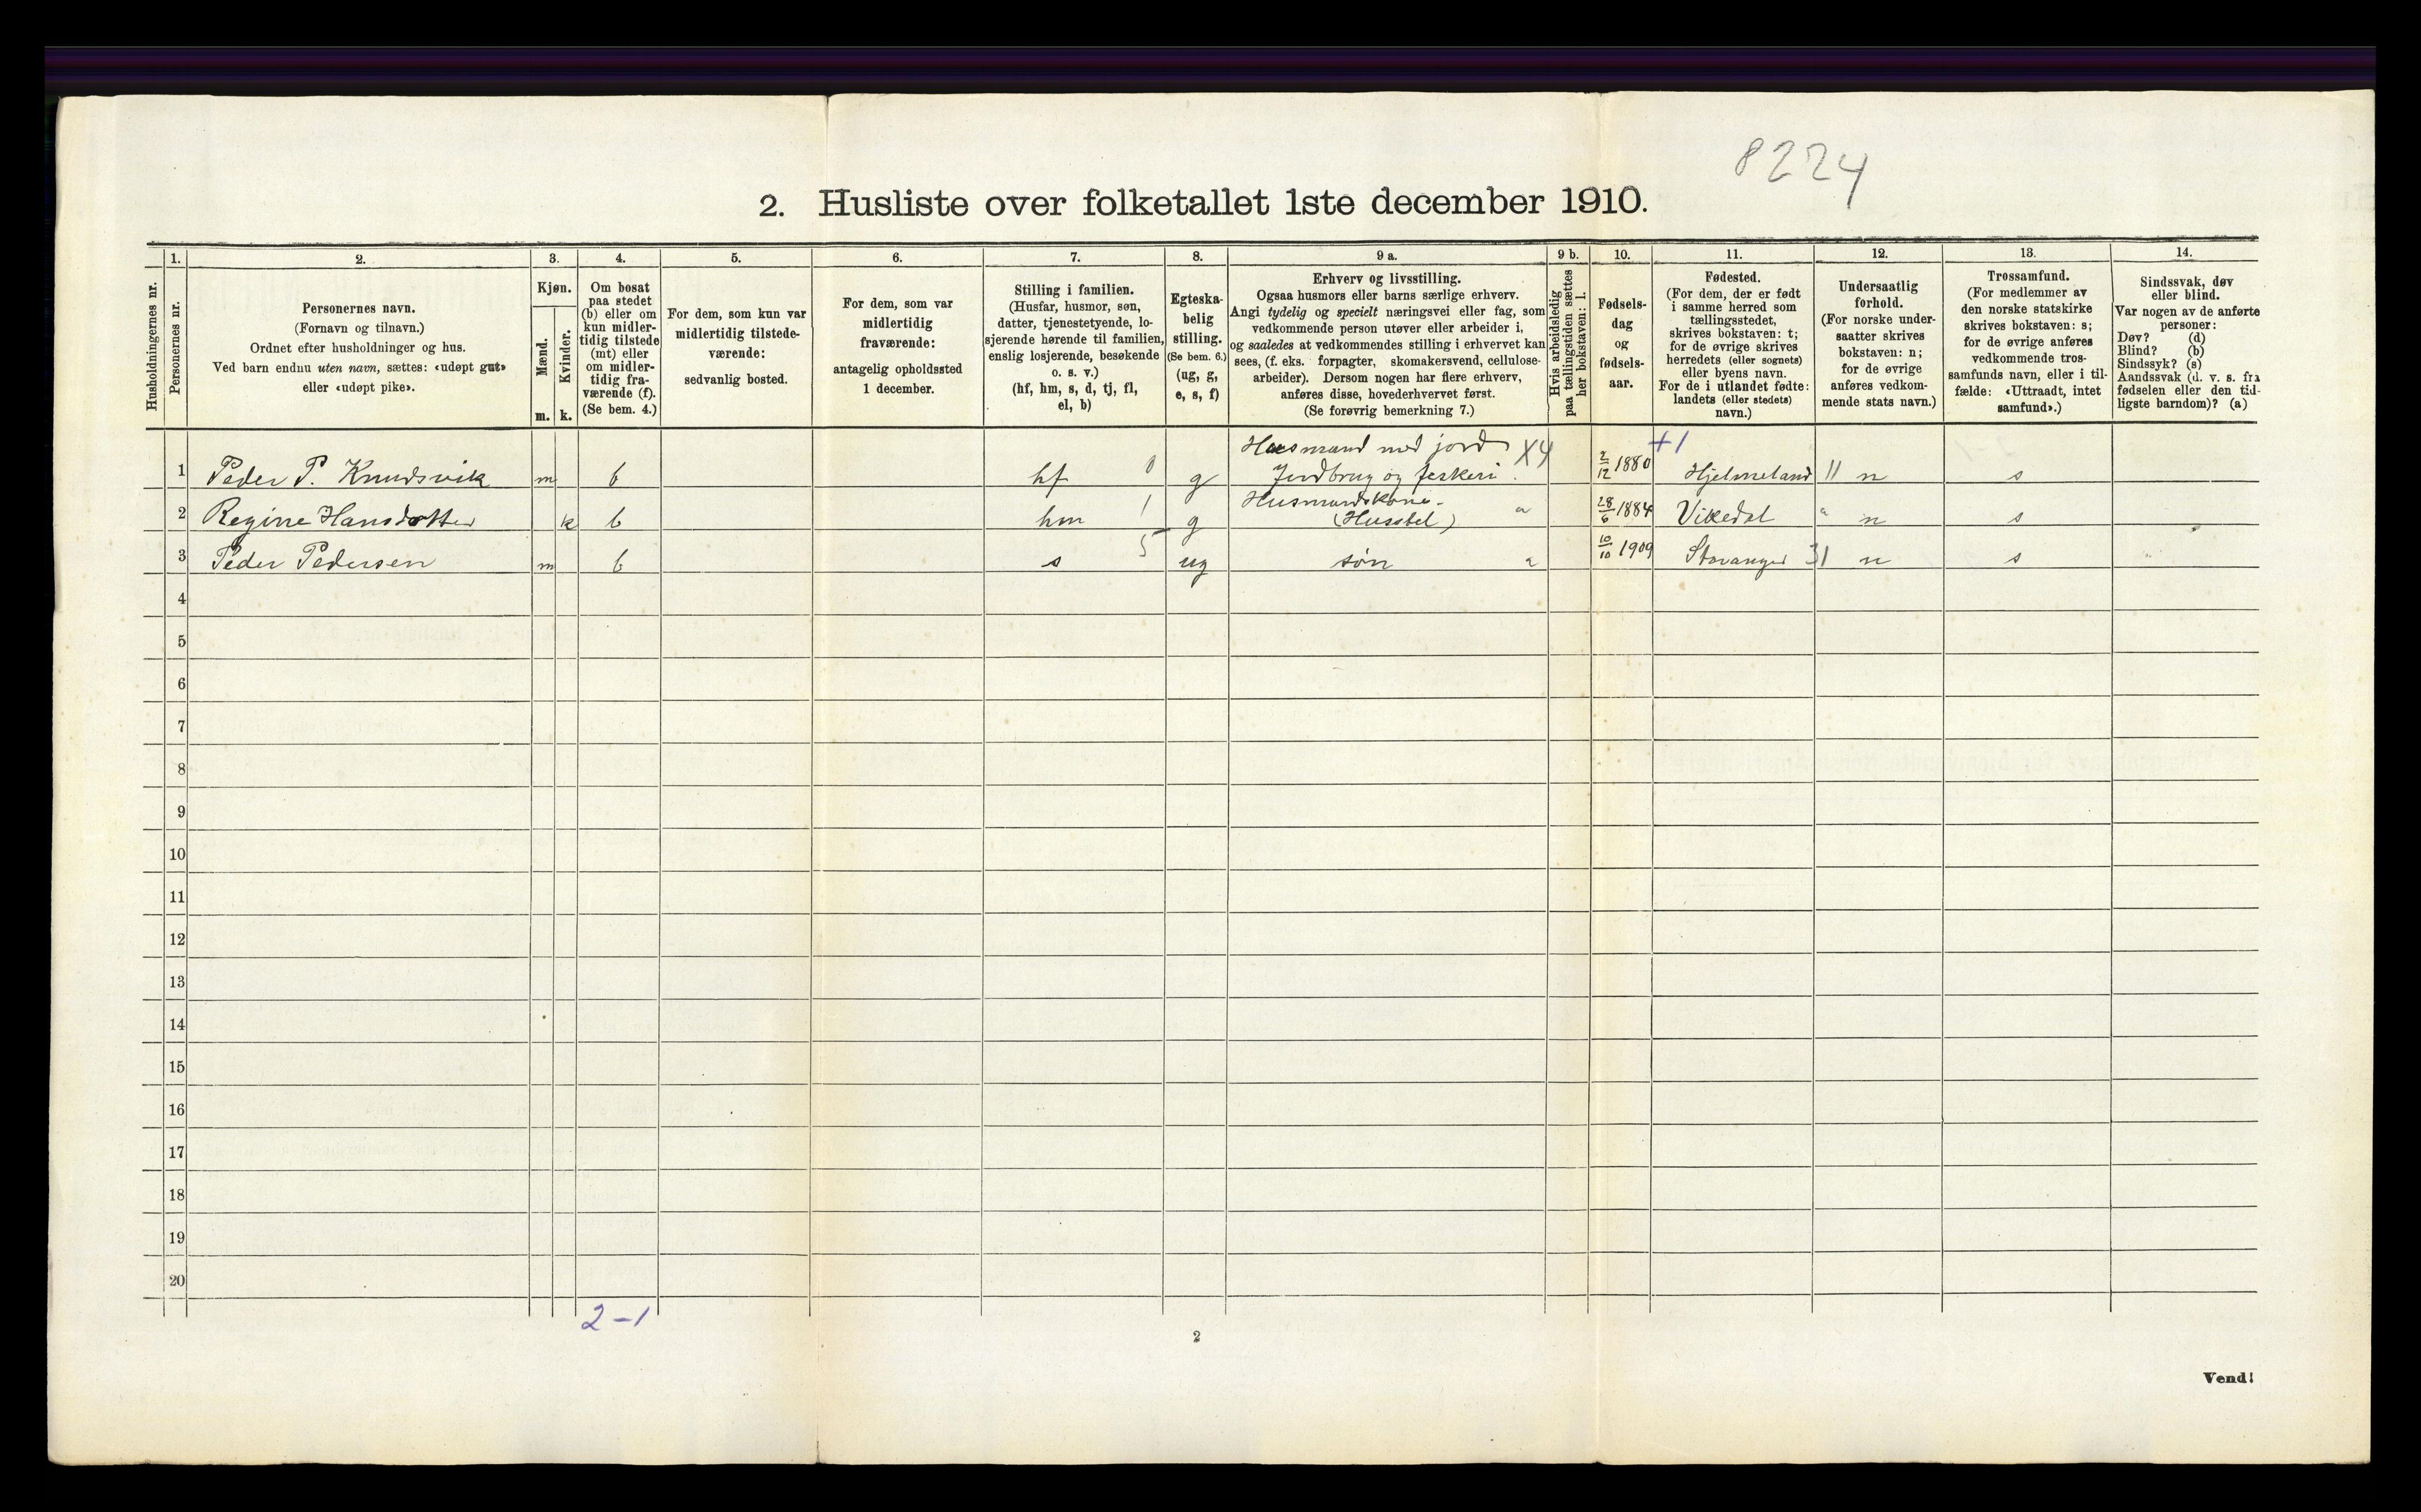 8224
2. Husliste over folketallet 1ste december 1910.
Husholdningernes nr.
1.
Personernes nr.
2.
Personernes navn.
(Fornavn og tilnavn.)
Ordnet efter husholdninger og hus.
Ved barn endnu uten navn, sættes: «udøpt gut»
eller «udøpt pike».
3.
Kjøn.
Mænd.
Kvinder.
m. k.
4.
Om bosat
paa stedet
(b) eller om
kun midler-
tidig tilstede
(mt) eller
om midler-
tidig fra-
værende (f).
(Se bem. 4.)
5.
For dem, som kun var
midlertidig tilstede-
værende:
sedvanlig bosted.
6.
For dem, som var
midlertidig
fraværende:
antagelig opholdssted
1 december.
7.
Stilling i familien.
(Husfar, husmor, søn,
datter, tjenestetyende, lo-
sjerende hørende til familien,
enslig losjerende, besøkende
o. s. v.)
(hf, hm, s, d, tj, fl,
el, b)
8.
Egteska-
belig
stilling.
(Se bem. 6.)
(ug, g,
e, s, f)
9 a.
Erhverv og livsstilling.
Ogsaa husmors eller barns særlige erhverv.
Angi tydelig og specielt næringsvei eller fag, som
vedkommende person utøver eller arbeider i,
og saaledes at vedkommendes stilling i erhvervet kan
sees, (f. eks. forpagter, skomakersvend, cellulose-
arbeider). Dersom nogen har flere erhverv,
anføres disse, hovederhvervet først.
(Se forøvrig bemerkning 7.)
9 b.
Hvis arbeidsledig
paa tællingstiden sættes
her bokstaven: l.
10.
Fødsels-
dag
og
fødsels-
aar.
11.
Fødested.
(For dem, der er født
i samme herred som
tællingsstedet,
skrives bokstaven: t;
for de øvrige skrives
herredets (eller sognets)
eller byens navn.
For de i utlandet fødte:
landets (eller stedets)
navn.)
12.
Undersaatlig
forhold.
(For norske under-
saatter skrives
bokstaven: n;
for de øvrige
anføres vedkom-
mende stats navn.)
13.
Trossamfund.
(For medlemmer av
den norske statskirke
skrives bokstaven: s;
for de øvrige anføres
vedkommende tros-
samfunds navn, eller i til-
fælde: «Uttraadt, intet
samfund».)
14.
Sindssvak, døv
eller blind.
Var nogen av de anførte
personer:
Døv? (d)
Blind? (b)
Sindssyk? (s)
Aandssvak (d. v. s. fra
fødselen eller den tid-
ligste barndom)? (a)
Husmand med jord X4 +1
1 Peder P. Knudsvik m b hf 0 g Jordbrug og feskeri. 2/12 1880 Hjelmeland 11 n s
Husmandskone-
2 Regine Hansdatter k b hm 1 g (Husstel) " 28/6 1884 Vikedal " n s
3 Peder Pedersen m b s 5 ug søn " 10/10 1909 Stavanger 31 n s
4
5
6
7
8
9
10
11
12
13
14
15
16
17
18
19
20
2-1
2
Vend!